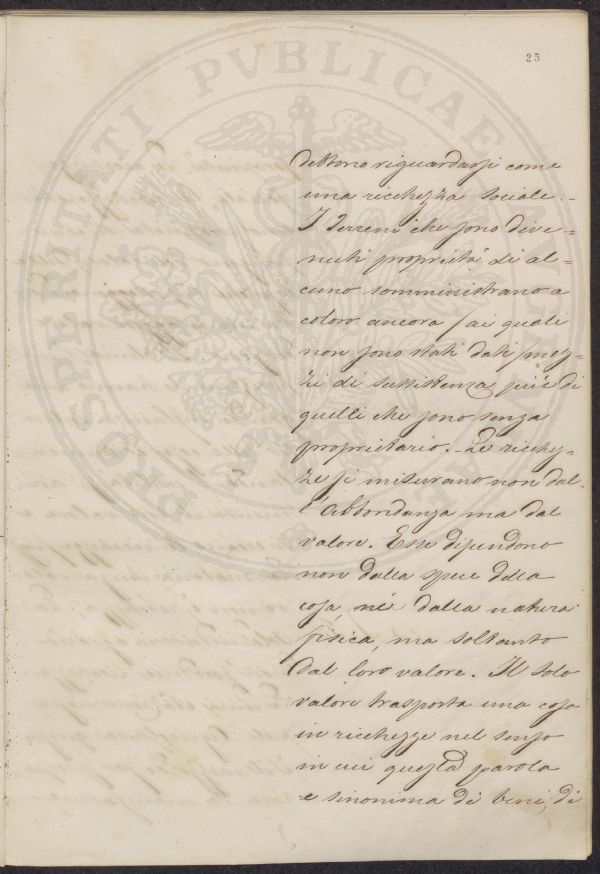 25
PROSPERITATI PVBLICAE
debbono riguardarsi come
una ricchezza sociale.
I terreni che sono dive-
nuti proprietà di al-
cuno somministrano a
coloro ancora (ai quali
non sono stati dati) mez-
zi di sussistenza più di
quelli che sono senza
proprietario. Le ricchez-
ze si misurano non dal-
l'abbondanza ma dal
valore. Esse dipendono
non dalla specie della
cosa, né dalla natura
fisica, ma soltanto
dal loro valore. Il solo
valore trasporta una cosa
in ricchezze nel senso
in cui questa parola
e sinonima di beni, di